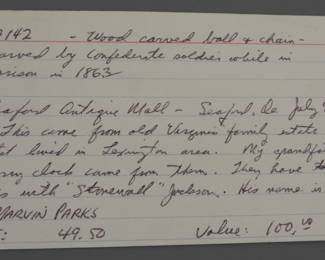 142 - Wood carved ball & chain -
arved by Confederate soldier while in
rison in 1863
aford Antique Mall - Seaford, De July
This came from old Virginia family state
lived in Lexington area. My grandf
clock came from them. They have t
s with "Stonewall" Jackson. His name is
MARVIN PARKS
: 49.50 Value: 100,00